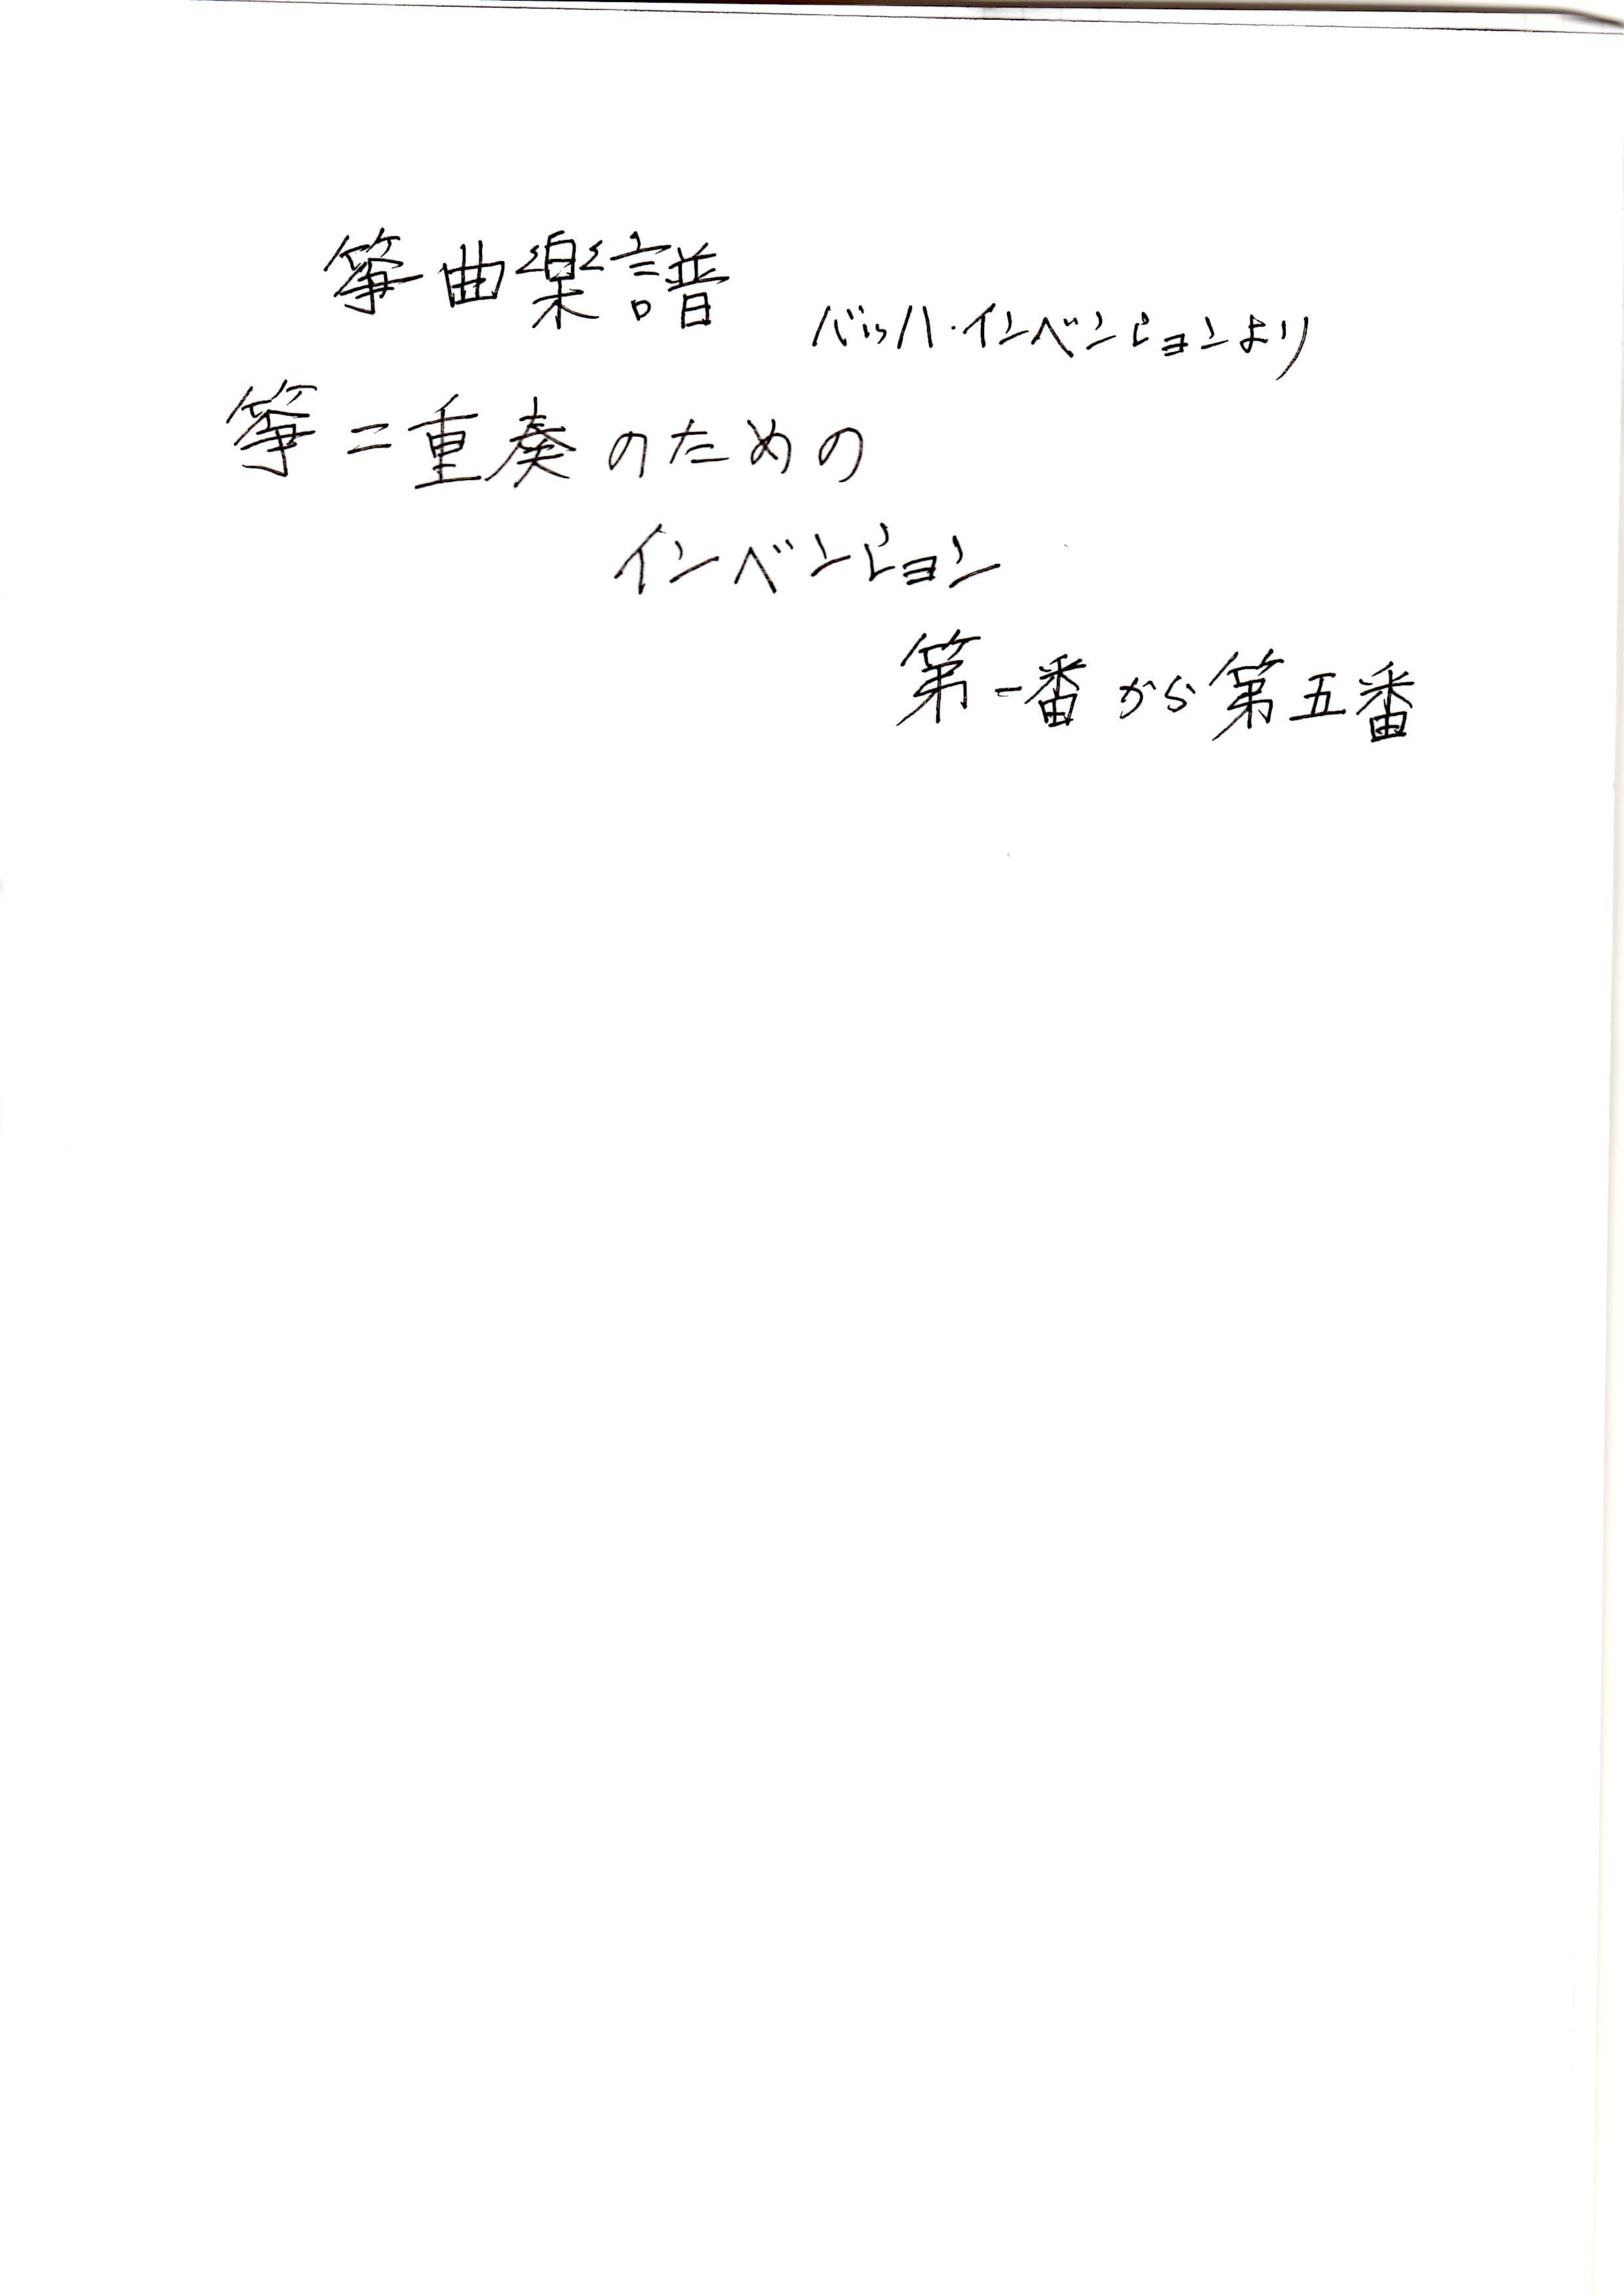 箏曲楽譜
バッハ・インベンションより
箏二重奏のための
インベンション
第一番から第五番